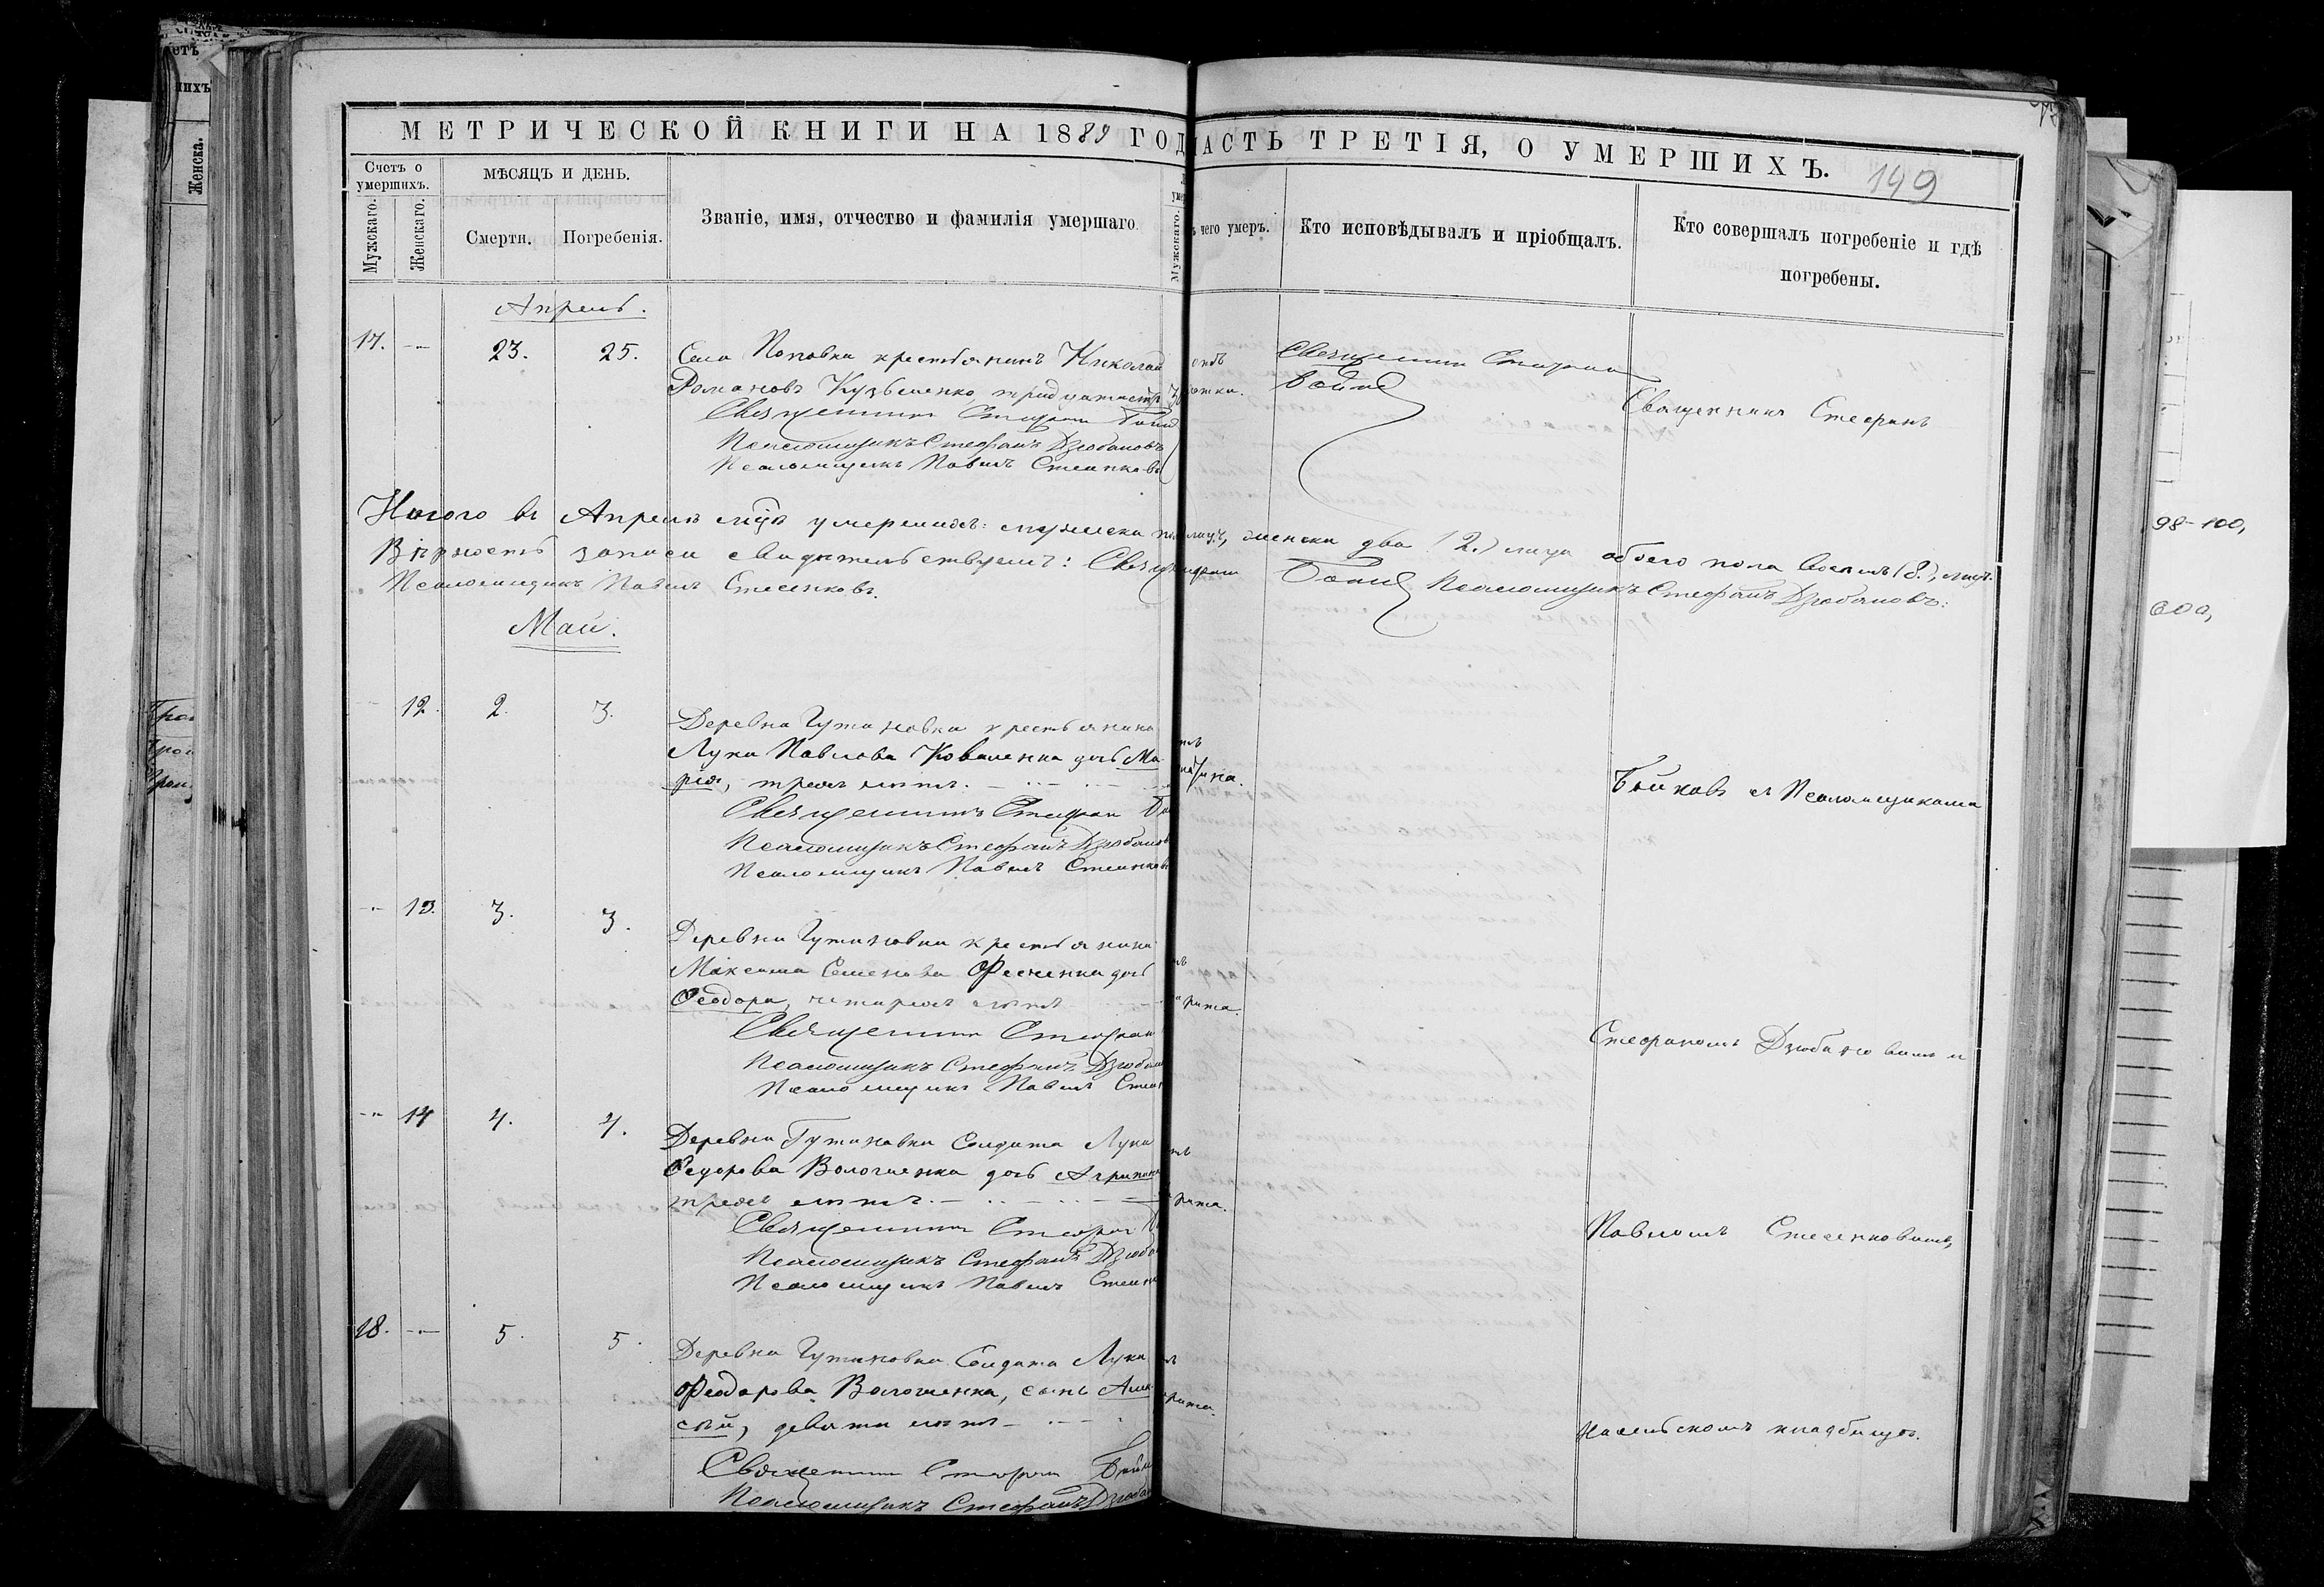 МЕТРИЧЕСКОЙ КНИГИ НА 1889 ГОД
АСТЬ ТРЕТІЯ, О УМЕРШИХЪ. 149
Счетъ о умершихъ.
МѢСЯЦЪ И ДЕНЬ.
Мужскаго.
Женскаго.
Смерти.
Погребенія.
Званіе, имя, отчество и фамилія умершаго
Мужскаго.
чего умеръ.
Кто исповѣдывалъ и пріобщалъ.
Кто совершалъ погребеніе и гдѣ
погребены.
Апрель.
17. 23. 25. Села Поповки крестьянинъ Николай
Романовъ Кузьменко,
Священникъ Стефанъ
Псаломщикъ Стефанъ Дзюбановъ
Псаломщикъ Павелъ Стесенковъ
Священникъ Стефанъ
Бойко
Священникъ Стефанъ
Итого въ Апрелѣ умершихъ: мужеска женска два (2.) лица обоего пола восемь (8.), лицъ.
Вѣрность записи свидѣтельствуемъ: Псаломщикъ Стефанъ Дзюбановъ:
Псаломщикъ Павелъ Стесенковъ.
Май.
12. 2. 3. Деревни Гутиновки крестьянина
Луки Павлова Коваленка дочь Ма-
рія, трехъ лѣтъ.
Священникъ Стефанъ
Псаломщикъ Стефанъ Дзюбанов
Псаломщикъ Павелъ Стесенков
Бойковъ съ Псаломщиками
13. 3. 3. Деревни Гутиновки крестьянина
Максима Семенова Фесенка дочь
Феодора, четырехъ лѣтъ
Священникъ Стефанъ
Псаломщикъ Стефанъ Дзюбан
Псаломщикъ Павелъ Стесен
Стефаномъ Дзюбановымъ и
14 4. 4. Деревни Гутиновки Солдата Луки
Федорова Волошенка дочь Агрипина
трехъ лѣтъ.
Священникъ Стефанъ
Псаломщикъ Стефанъ Дзюба
Псаломщикъ Павелъ Стесен
Павломъ Стесенковымъ,
18. 5. 5. Деревни Гутиновки Солдата Луки
Феодорова Волошенка, сынъ Алек-
сѣй, девяти лѣтъ
Священникъ Стефанъ Бойк
Псаломщикъ Стефанъ Дзюба
На сельскомъ кладбищѣ.
98-100,